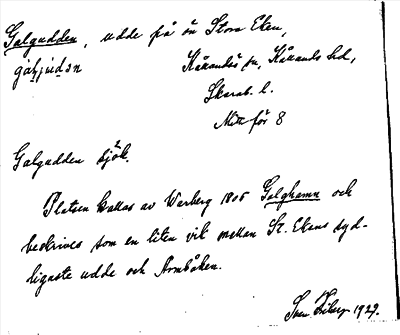 Galgudden, udde på ön Stora Eken,
Kållandsö sn, Kållands hd,
Skarab. l.
Nitt för 8
Galgudden sjök.
Platsen kallas av Warberg 1806 Galghamn och
beskrives som en liten vik mellan St. Ekens syd-
ligaste udde och Armbåken.
1929.